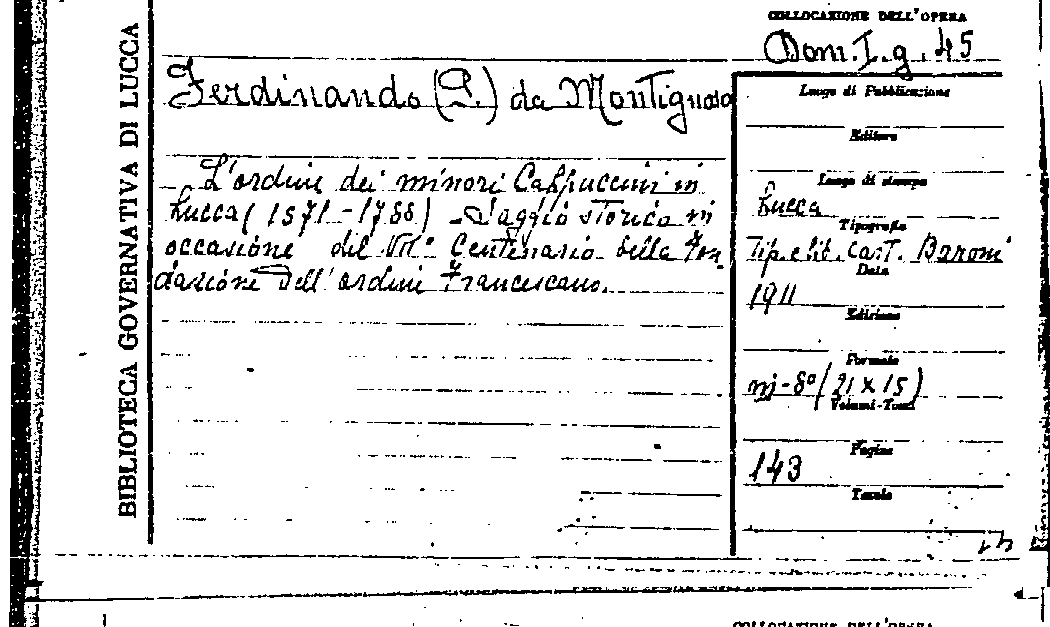 BIBLIOTECA GOVERNATIVA DI LUCCA
COLLOCAZIONE DELL'OPERA
Dom. I. g. 45
Ferdinando (P.) da Montignoso
L'ordine dei minori Cappuccini in
Lucca (1571 - 1788) - Saggio storico in
occasione del VII° Centenario della Fon
dazione dell'ordine Francescano.
Luogo di Pubblicazione
Editore
Luogo di stampa
Lucca
Tipografia
Tip. e lit. Cart. Baroni
Data
1911
Edizione
Formato
in-8° (21 x 15)
Volumi-Tomi
Pagine
143
Tavole
COLLOCAZIONE DELL'OPERA